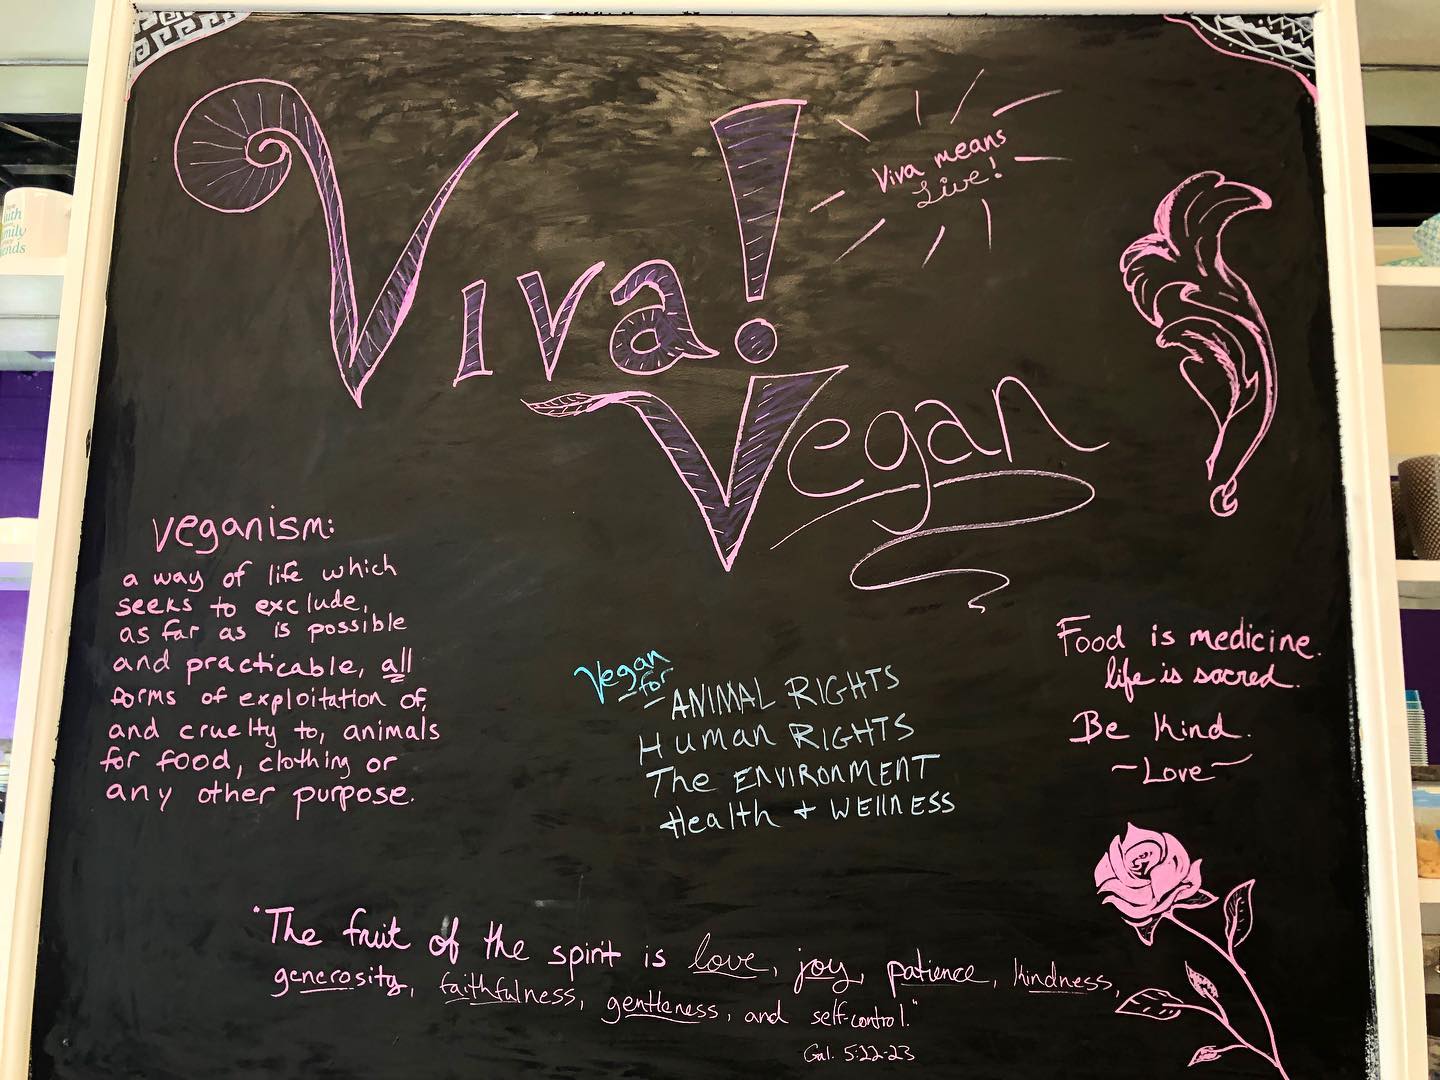 Viva!
Viva means
Live!
Vegan
veganism:
a way of life which
seeks to exclude,
as far as is possible
and practicable, all
forms of exploitation of,
and cruelty to, animals
for food, clothing or
any other purpose.
Vegan
for
ANIMAL RIGHTS
Human RIGHTS
The ENVIRONMENT
Health + WELLNESS
Food is medicine.
life is sacred.
Be Kind.
~Love~
"The fruit of the spirit is love, joy, patience, kindness,
generosity, faithfulness, gentleness, and self-control."
Gal. 5:22-23